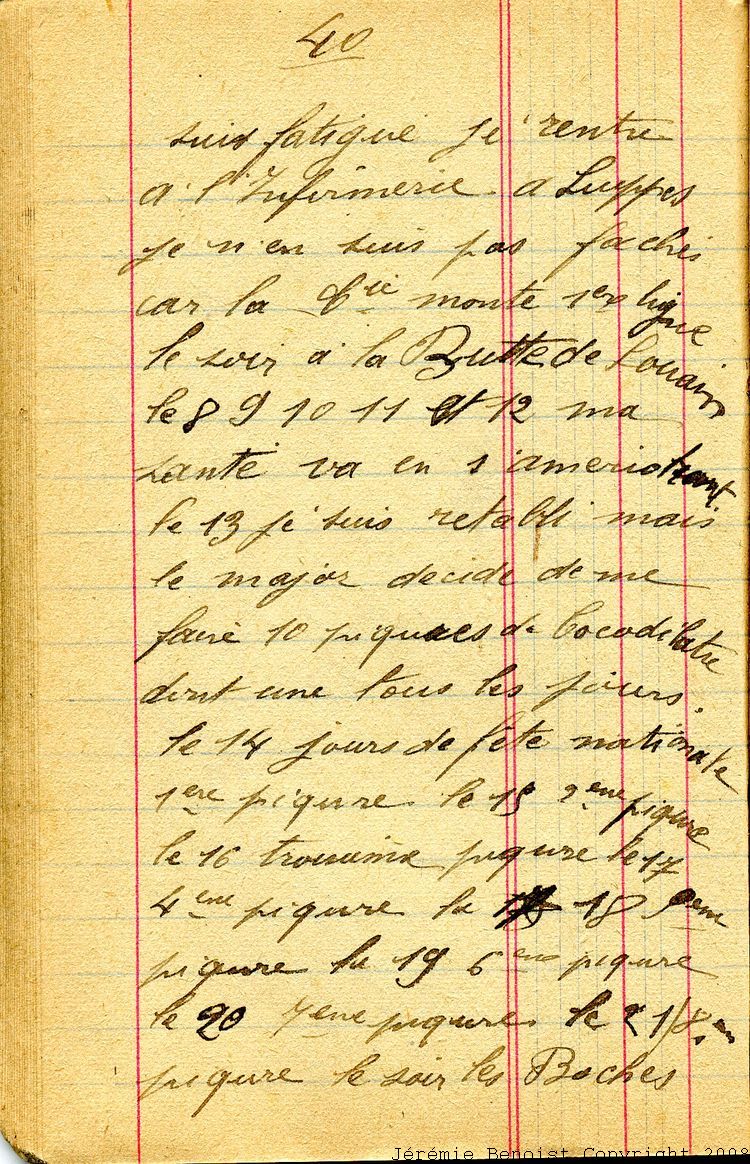 40
suis fatigué je rentre
a l'Infirmerie a Suippes
je n'en suis pas faché
car la Cie monte 1er ligne
le soir a la Butte de Souain
le 8 9 10 11 et 12 ma
santé va en s'ameriotrant
le 13 je suis retabli mais
le major decide de me
faire 10 piqures de Cocodilatre
dont une tous les jours.
le 14 jours de fête nationale
1ere piqure le 15 2eme piqure
le 16 troisième piqure le 17
4eme piqure le 18 5em
piqure le 19 6eme piqure
le 20 7eme piqure le 21 8em
piqure le soir les Boches
Jérémie Benoist Copyright 2008